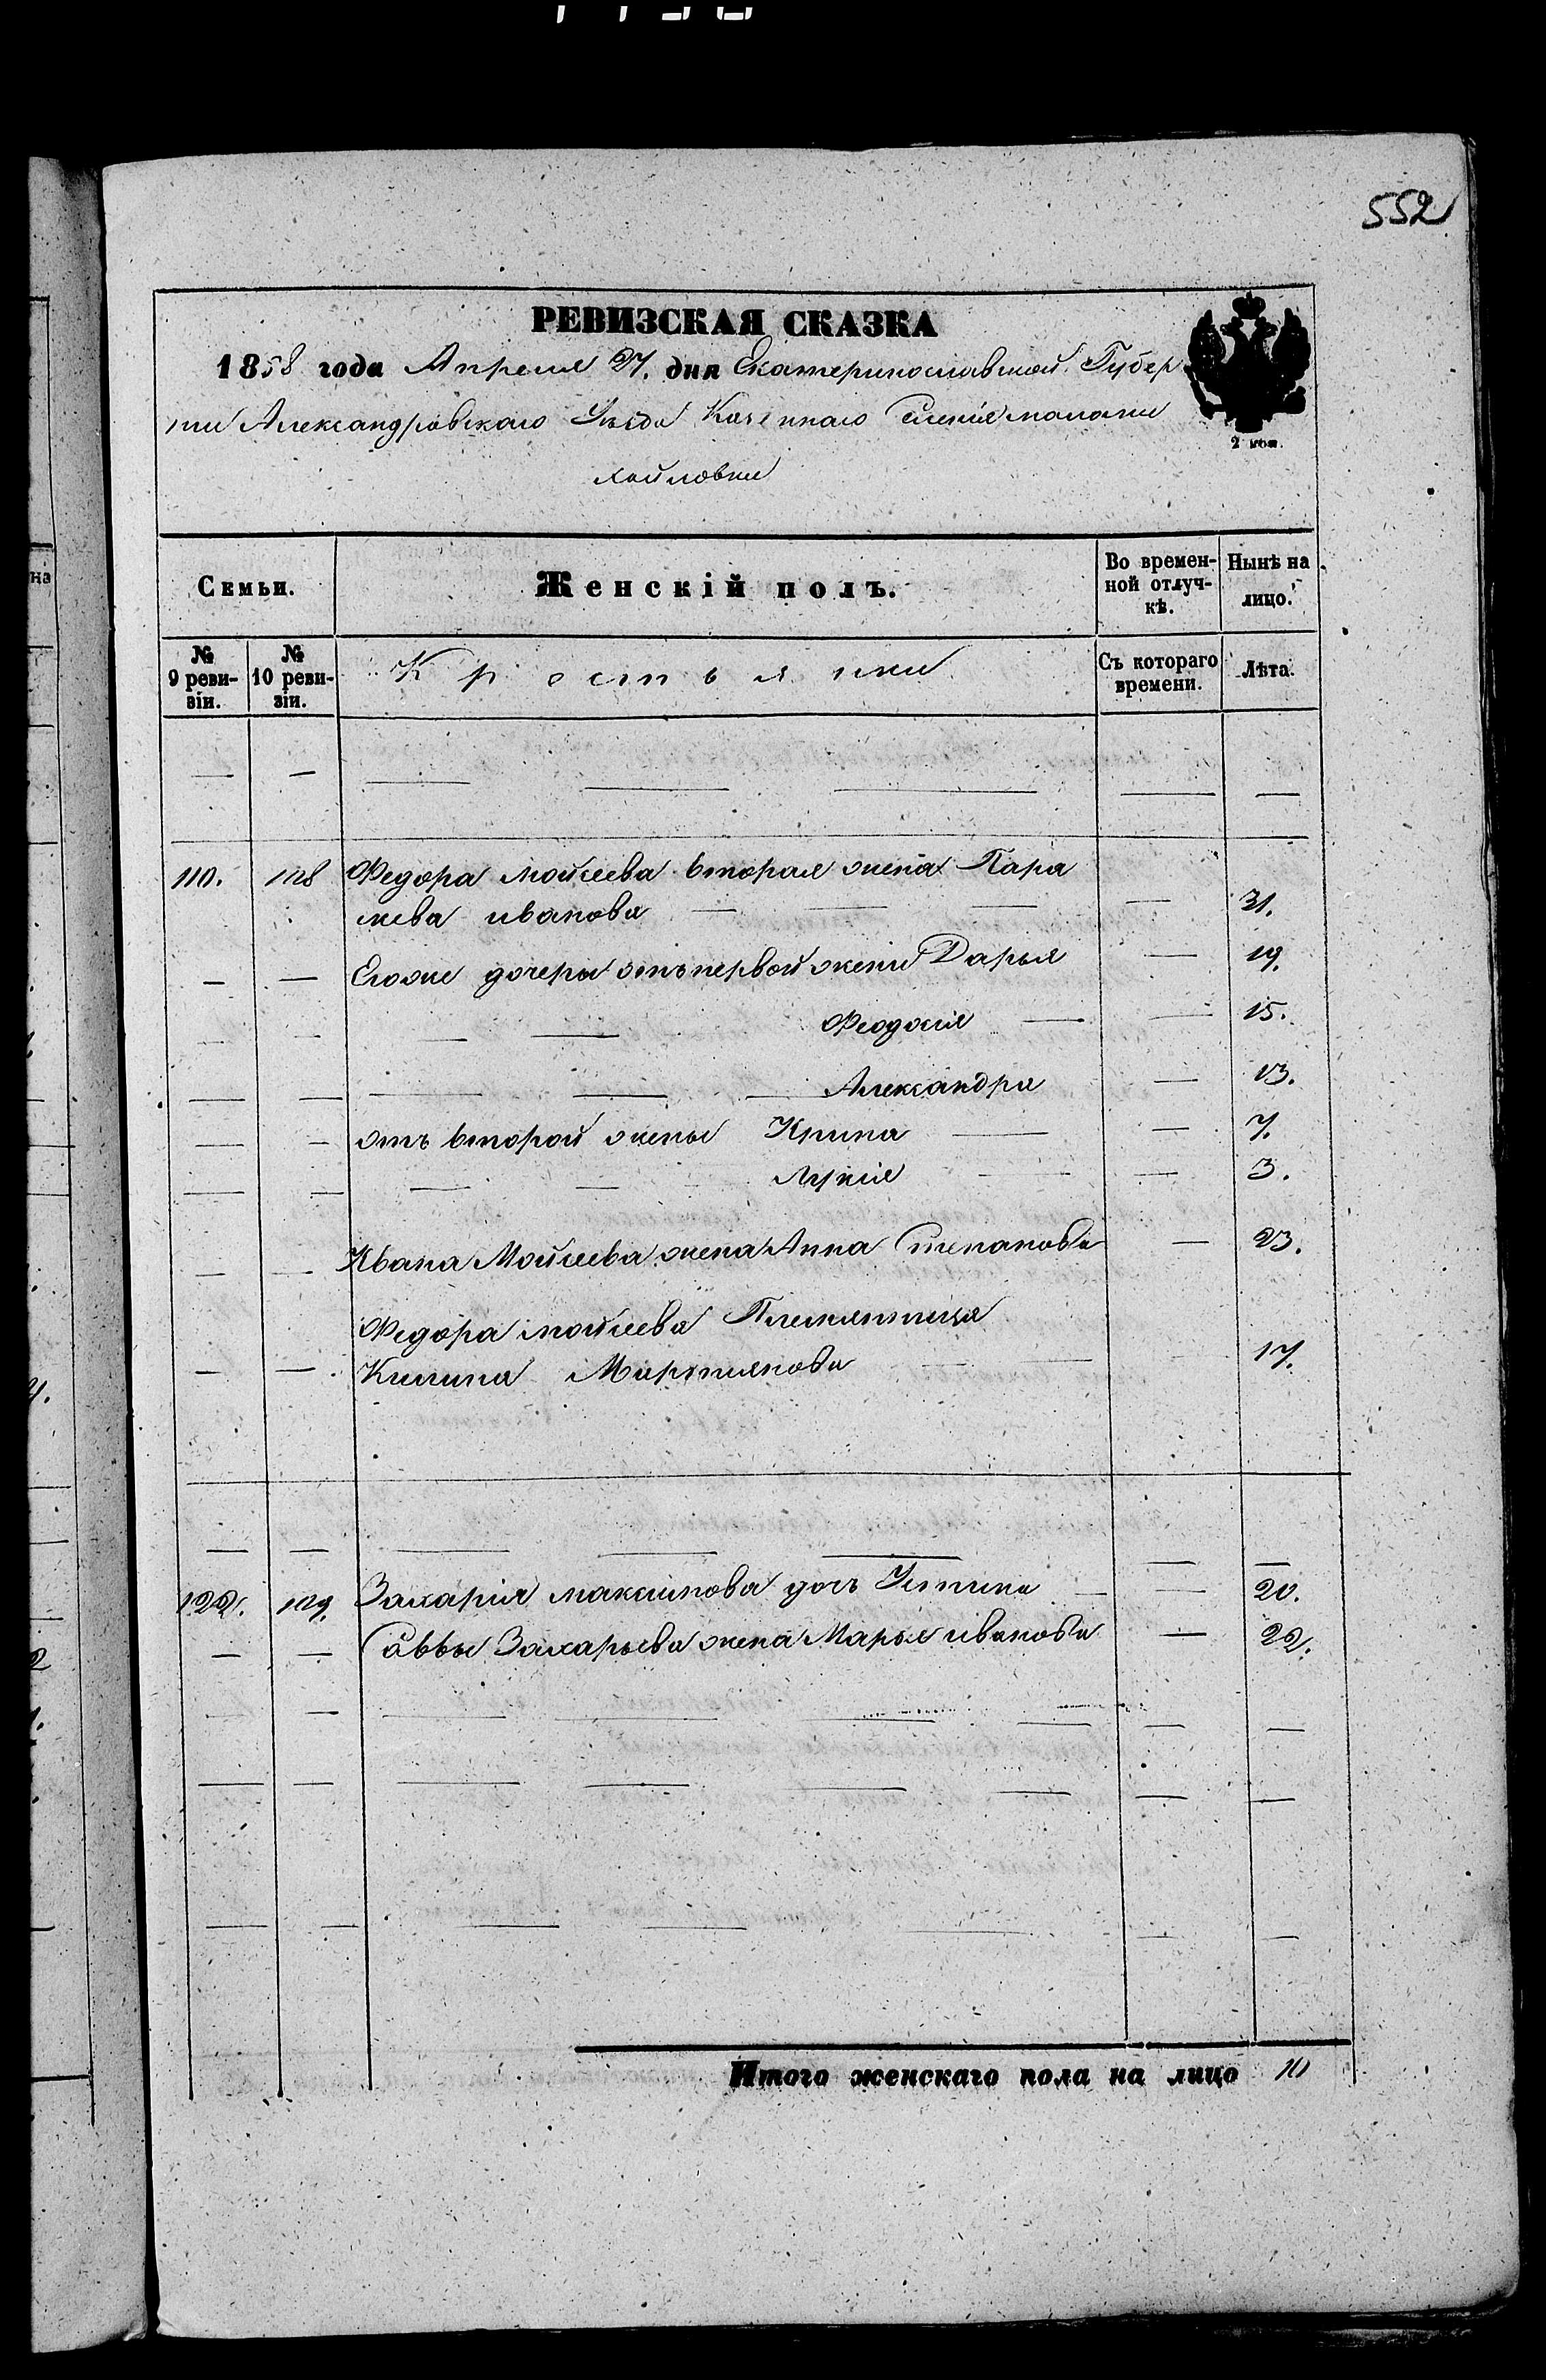 552
РЕВИЗСКАЯ СКАЗКА
1858 года Апреля 27. дня Екатеринославской Губер
нии Александровскаго Уезда Казеннаго Селенія маломи
хайловки
2 коп.
Семьи.
Женскій полъ.
Во времен-
ной отлуч-
кѣ.
Нынѣ на
лицо.
№
9 реви-
зіи.
№
10 реви-
зіи.
Крестьянки
Съ котораго
времени.
Лѣта.
110. 108 Федора мойсеева вторая жена Пара
скева иванова 31.
Егоже дочеры отъ первой жени Дарья 19.
Феодосія 15.
Александра 13.
отъ второй жены Ирина 7.
Лукія 3.
Ивана Мойсеева жена Анна Степанова 23.
Федора мойсеева Племянница
Килина Мартинова 17.
122. 109. Захарія максимова дочь Устина 20.
Саввы Захарьева жена Марья иванова 22.
Итого женскаго пола на лицо 10